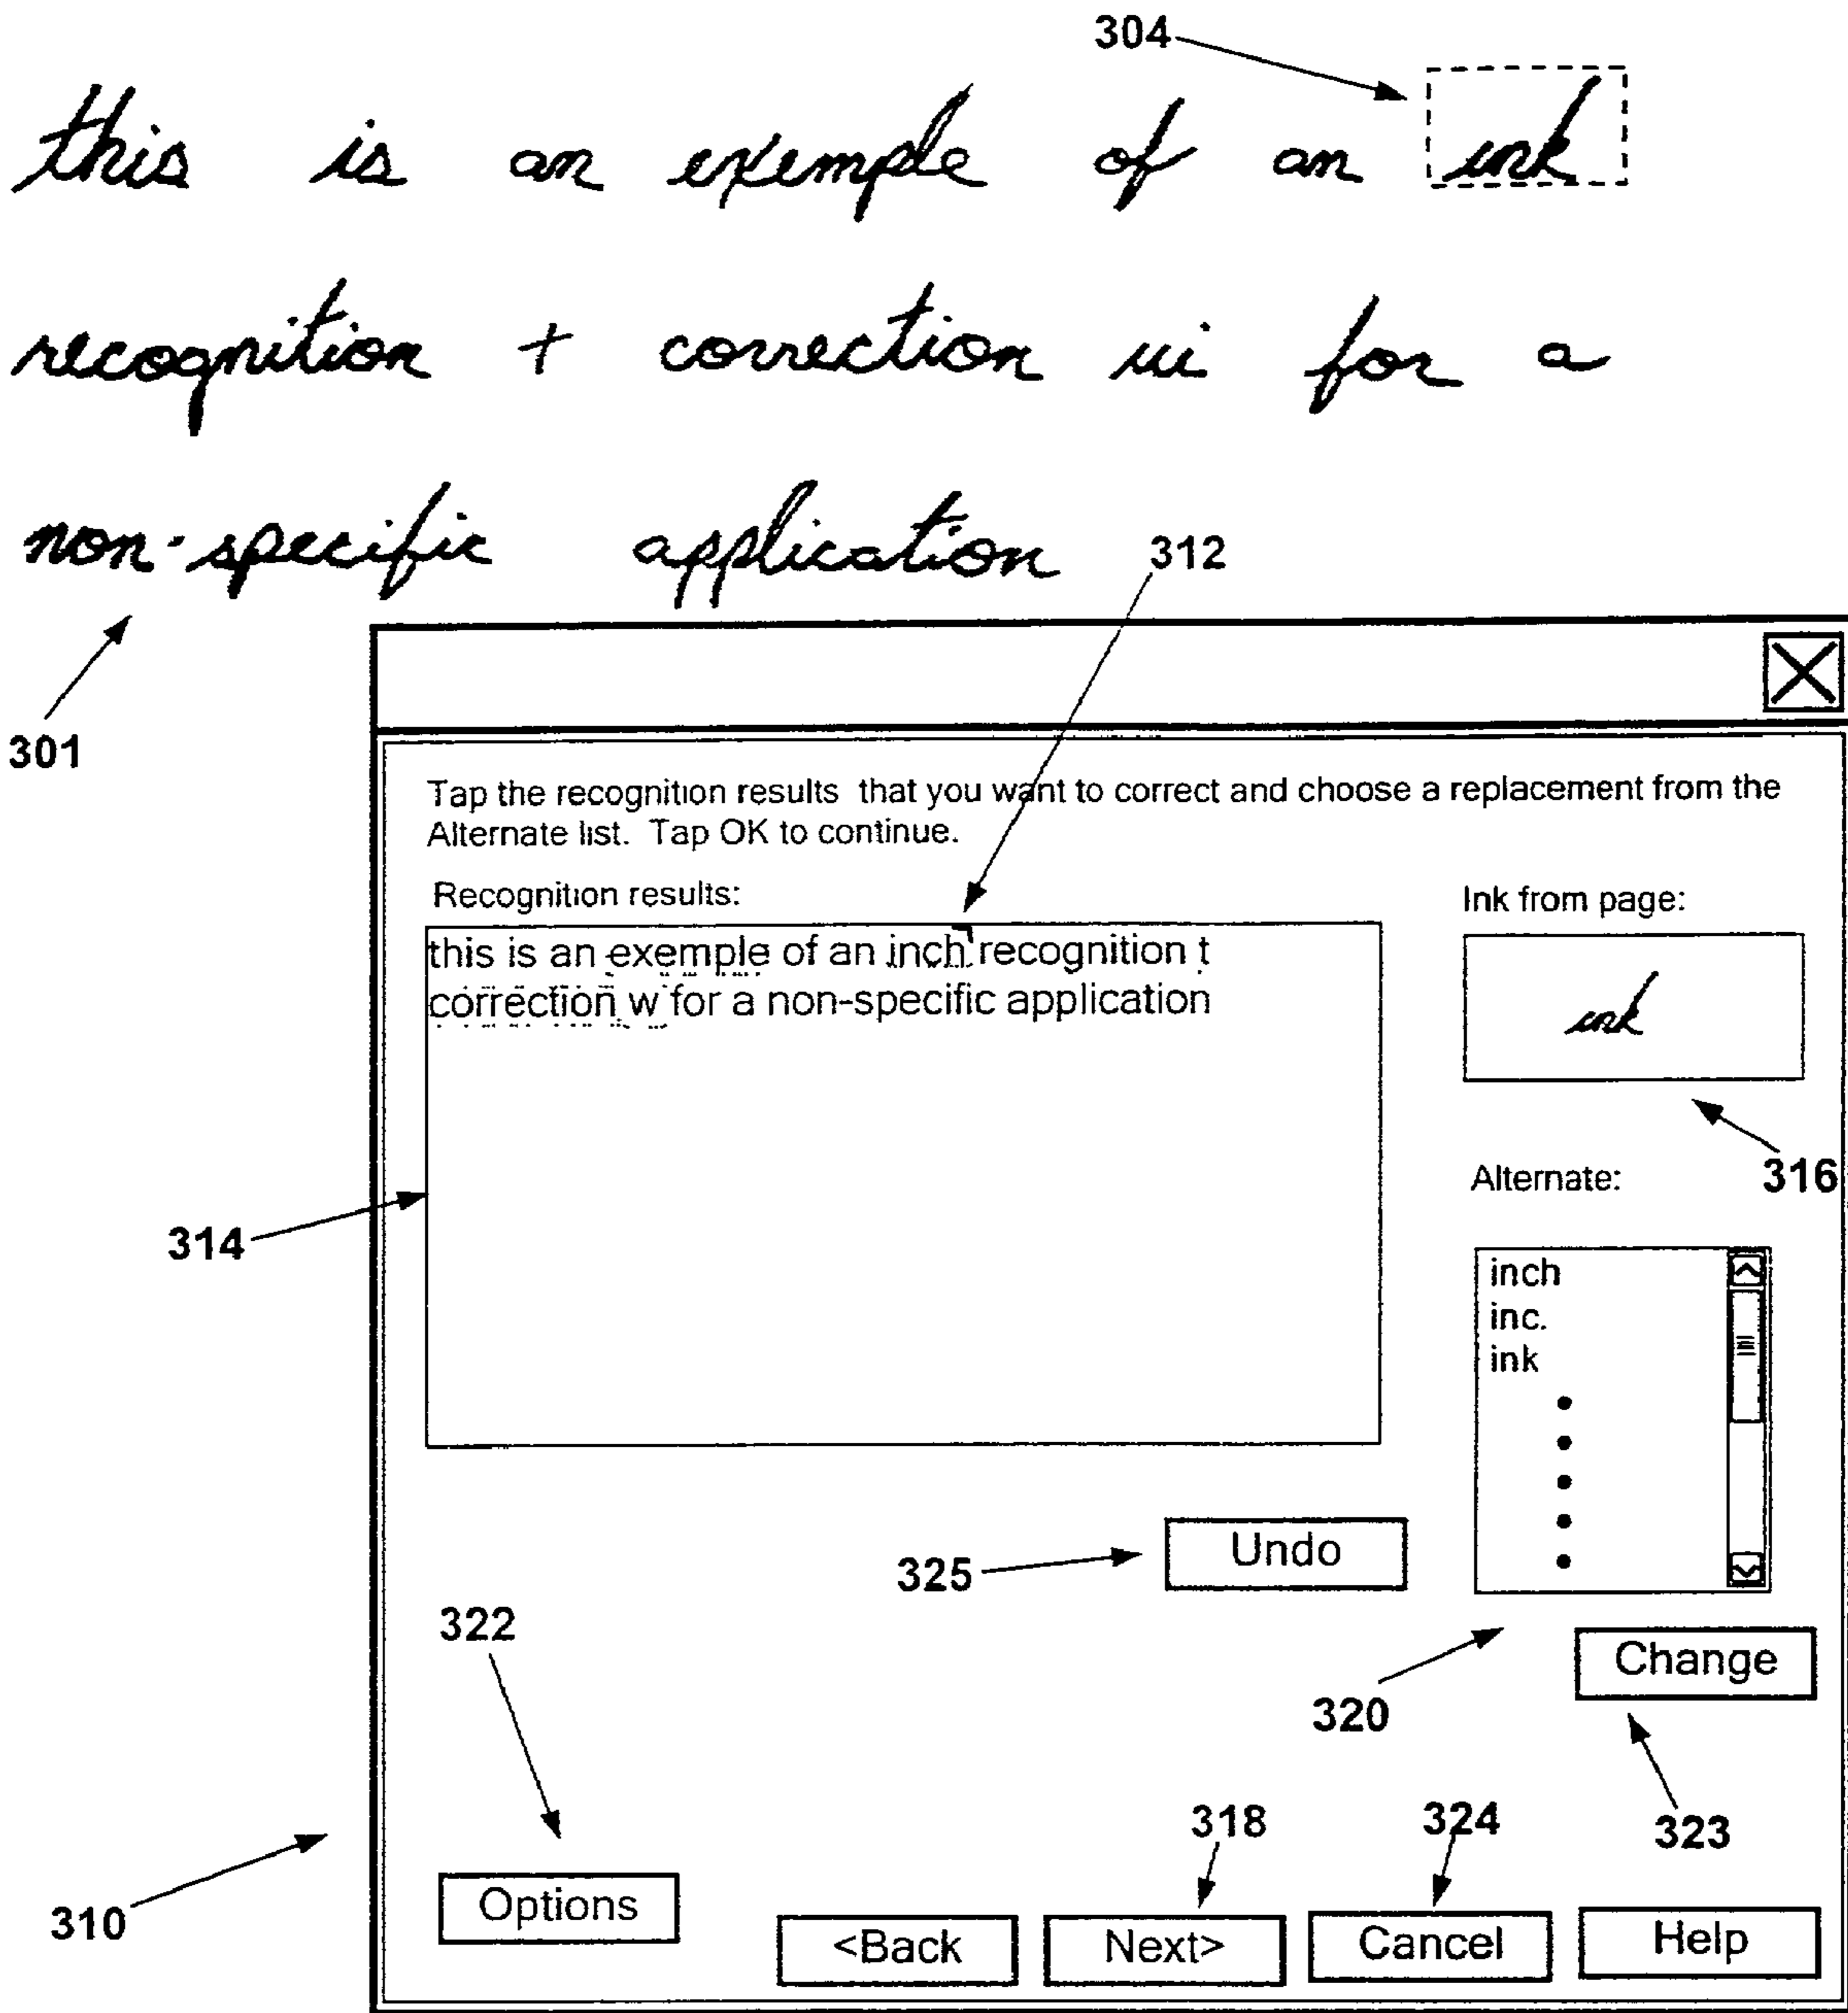 304
this is an exemple of an ink
recognition + correction ui for a
non-specific application
312
301
Tap the recognition results that you want to correct and choose a replacement from the
Alternate list. Tap OK to continue.
Recognition results:
Ink from page:
this is an exemple of an inch recognition t
correction w for a non-specific application
ink
316
Alternate:
314
inch
inc.
ink
Undo
325
322
320
Change
318
324
323
310
Options
<Back
Next>
Cancel
Help